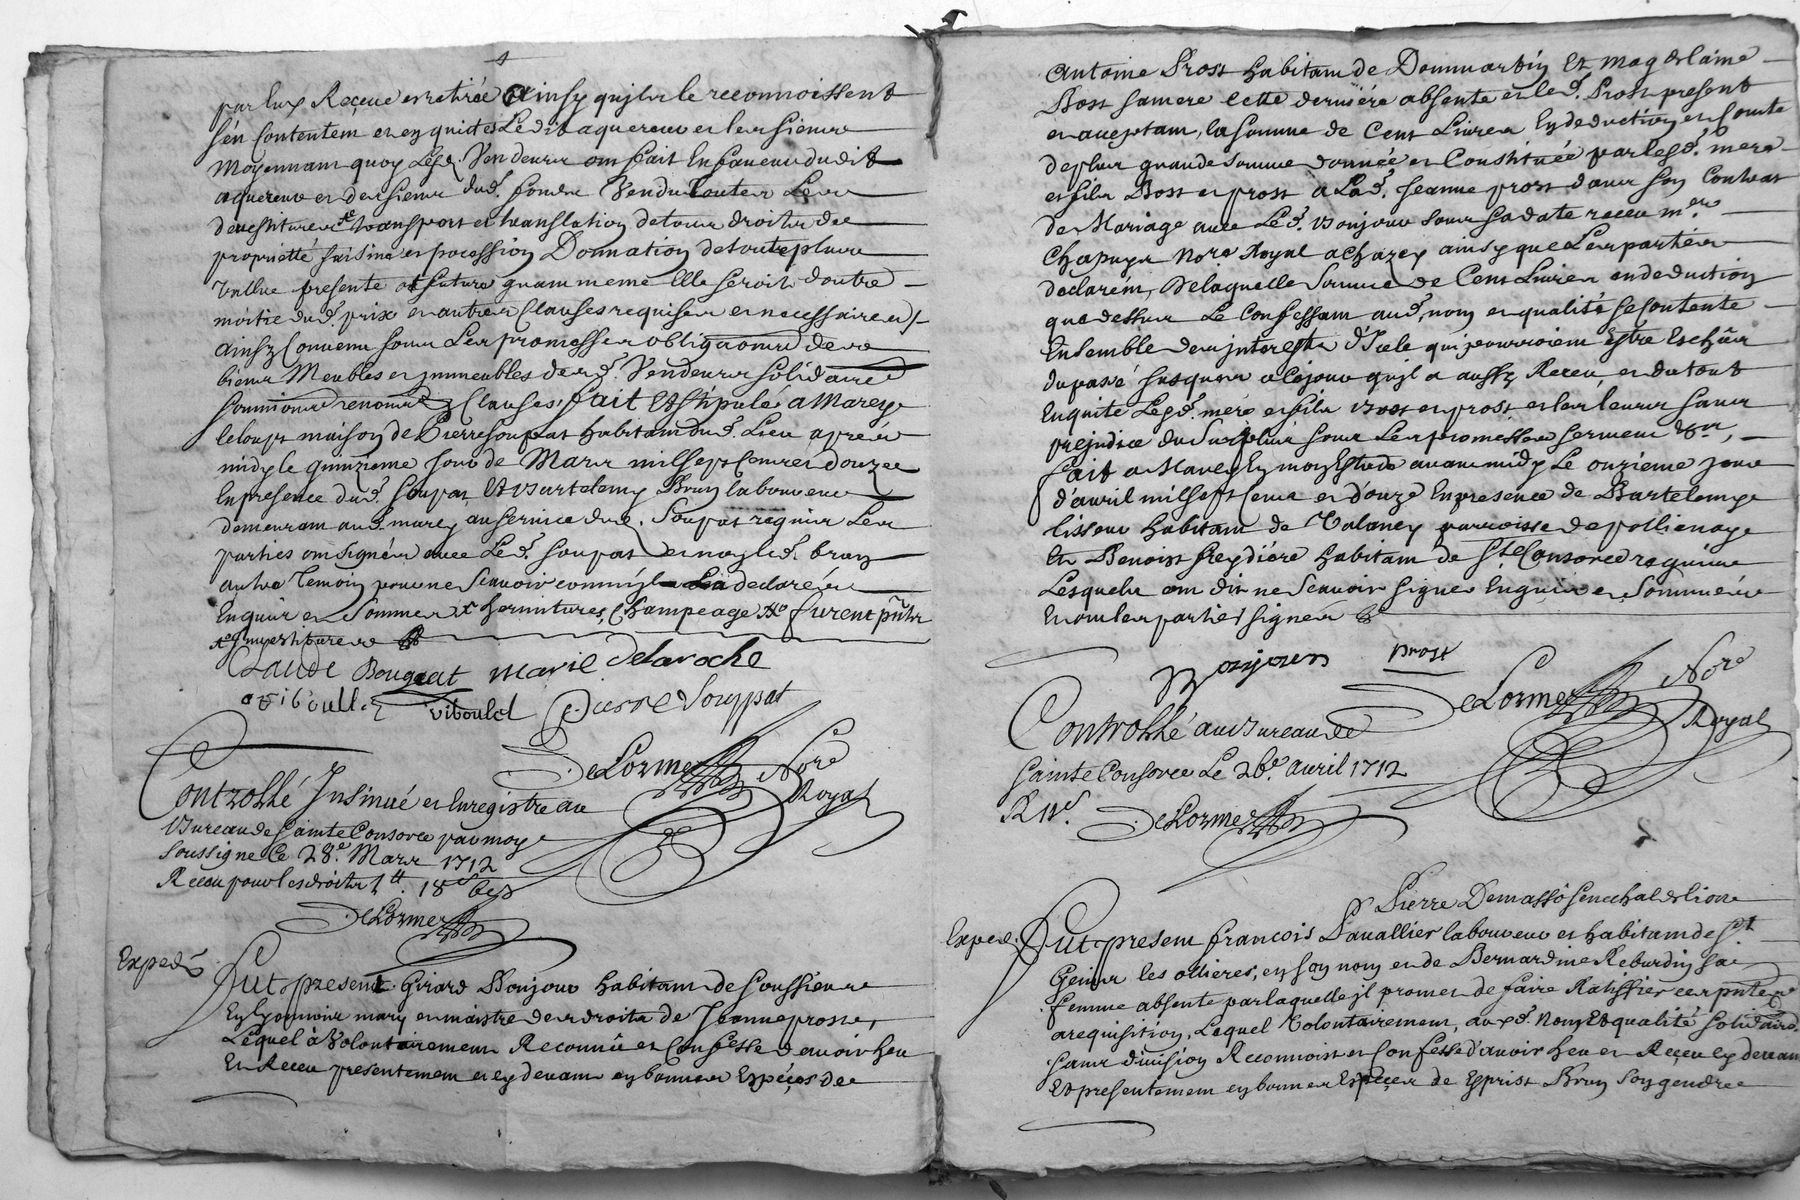 par Eux Receue et retirée Ainsy qu'ils le reconnoissent
s'en Contentent et en quictes Ledit aquereur et les siens
Moyennant quoy Lesd. Vendeurs ont fait En faveur dudit
aquereur et des siens dud. fonds Vendu toutes Les
devestitures transport et translation de tous droits de
proprietté saisine et possession Donnation de toute plus
Vallue presente et future quant meme Elle seroit d'outre
moitié dud. prix et autres Clauses requises et necessaires
Ainsy Convenu sous Les promesses obligaons de
biens Meubles et immeubles desd. Vendeurs solidaires
soumions renonc. Clauses, fait Et stipulé a Marcy
le loup maison de Pierre soupat habitant dud. Lieu après
midy le quinzieme jour de Mars mil sept Cents et douze
En presence dud. soupat, Et Bartelemy Brun laboureur
demeurant aud. marcy au service dud. Soupat requis Les
parties ont signées avec Led. soupat et non led. brun
autre temoin pour ne sçavoir comm'il a declaré
Enquis et Sommé x hermitures, Champeage furent pñts
x et investitures
Claude Bouquat marie delaroche
viboulet viboulet Pierre Souppat
DeLorme Nore Royal
Controllé Insinué et Enregistré au
Bureau de sainte Consorce par moy
soussigné Ce 28e. Mars 1712
Receu pour les droits 1tt. 18s 6d
DeLorme
Exped.
Fut present Girard Bonjour habitant de soussieu
En Lyonnois mary et maistre des droits de Jeanne prost,
Lequel à Volontairement Reconnû et Confessé d'avoir heu
Et Receu presentement et cy devant en bonnes Espéces de
Antoine Prost habitant de Dommartin Et Magdelaine
Bost sa mere cette derniére absente et led. Prost present
et acceptant, la somme de Cent Livres En deduction et Comte
de plus grande somme donnée et Constituée par lesd. mere
et fils Bost et prost a Lad. Jeanne prost dans son Contrat
de Mariage avec Led. Bonjour sous sa date receu me.
Chapuys Nore Royal a Chazey ainsy que Les parties
declarent, De laquelle Somme de Cent Livres en deduction
que dessus Le Confessant aud. nom et qualité se Contente
Ensemble des interests d'Icele qui pourroient Estre Escheus
du passé jusques a ce jour qu'il a aussy Receu, et du tout
En quite Lesd. mere et fils Bost et prost et les leurs sans
prejudice du Surplus sous Les promesses serment &a,
fait a Marcy En mon Estude avant midy Le onzieme jour
d'avril mil sept Cents et d'ouze En presence de Bartelemy
lisseur habitant de Valoney parroisse de pollienay
Et Benoist freydiére habitant de Ste. Consorce requis
Lesquels ont dit ne sçavoir signer Enquis et Sommés
Et ont les parties signer
Bonjour prost
DeLorme Nore
Royal
Controllé au Bureau de
sainte Consorce Le 26e. avril 1712
R 11s.
DeLorme
Sr Pierre Demassô senechal de lion
Exped.
Fut present francois Lavallier laboureur et habitant de St
Genis les ollieres, en son nom et de Bernardine Reburdin sa
femme absente par laquelle il promet de faire Ratiffier ces pntes
a requisition, Lequel Volontairement, auxd. Noms Et qualité solidaire
sans division Reconnoist et Confesse d'avoir heu et Receu cy devant
Et presentement en bonnes Espéces de Esprist Brun son gendre